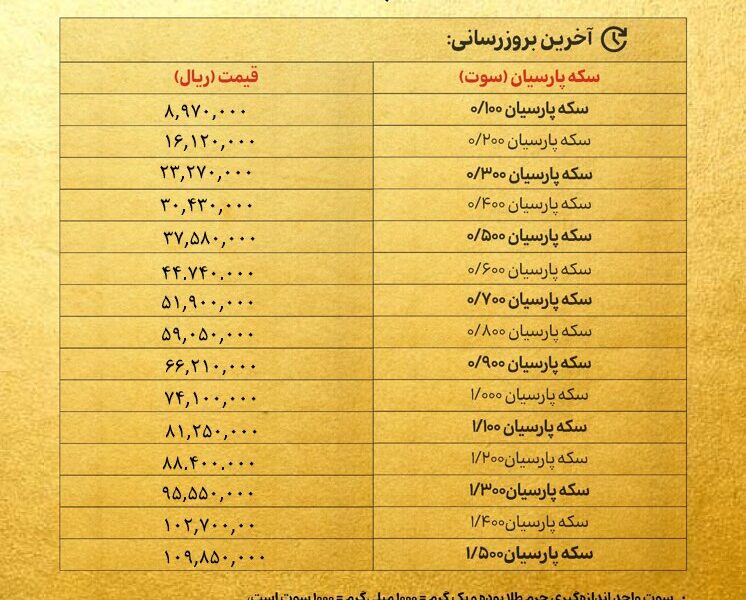 آخرین بروزرسانی:
سکه پارسیان (سوت) قیمت (ریال)
سکه پارسیان ۰/۱۰۰ ۸,۹۷۰,۰۰۰
سکه پارسیان ۰/۲۰۰ ۱۶,۱۲۰,۰۰۰
سکه پارسیان ۰/۳۰۰ ۲۳,۲۷۰,۰۰۰
سکه پارسیان ۰/۴۰۰ ۳۰,۴۳۰,۰۰۰
سکه پارسیان ۰/۵۰۰ ۳۷,۵۸۰,۰۰۰
سکه پارسیان ۰/۶۰۰ ۴۴.۷۴۰.۰۰۰
سکه پارسیان ۰/۷۰۰ ۵۱,۹۰۰,۰۰۰
سکه پارسیان ۰/۸۰۰ ۵۹,۰۵۰,۰۰۰
سکه پارسیان ۰/۹۰۰ ۶۶,۲۱۰,۰۰۰
سکه پارسیان ۱/۰۰۰ ۷۴,۱۰۰,۰۰۰
سکه پارسیان ۱/۱۰۰ ۸۱,۲۵۰,۰۰۰
سکه پارسیان۱/۲۰۰ ۸۸.۴۰۰.۰۰۰
سکه پارسیان۱/۳۰۰ ۹۵,۵۵۰,۰۰۰
سکه پارسیان۱/۴۰۰ ۱۰۲,۷۰۰,۰۰
سکه پارسیان۱/۵۰۰ ۱۰۹,۸۵۰,۰۰۰
سوت واحد اندازه‌گیری جرم طلا بوده و یک گرم = ۱۰۰۰ میلی‌گرم = ۱۰۰۰ سوت است.